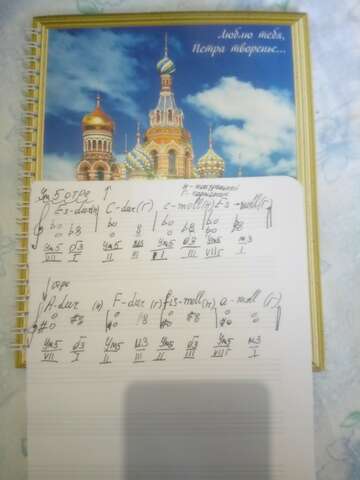 Люблю тебя,
Петра творенье...
Ум5 опре ↑
н - натуральный
г - гармонич
Es-dur(н) C-dur(г) c-moll(н) Es-moll(г)
Ум5 б3 Ум5 м3 Ум5 б3 Ум5 м3
VII I II III II III VII I
A-dur (н) F-dur (г) fis-moll(н) a-moll (г)
Ум5 б3 Ум5 м3 Ум5 б3 Ум5 м3
VII I II III II III VII I